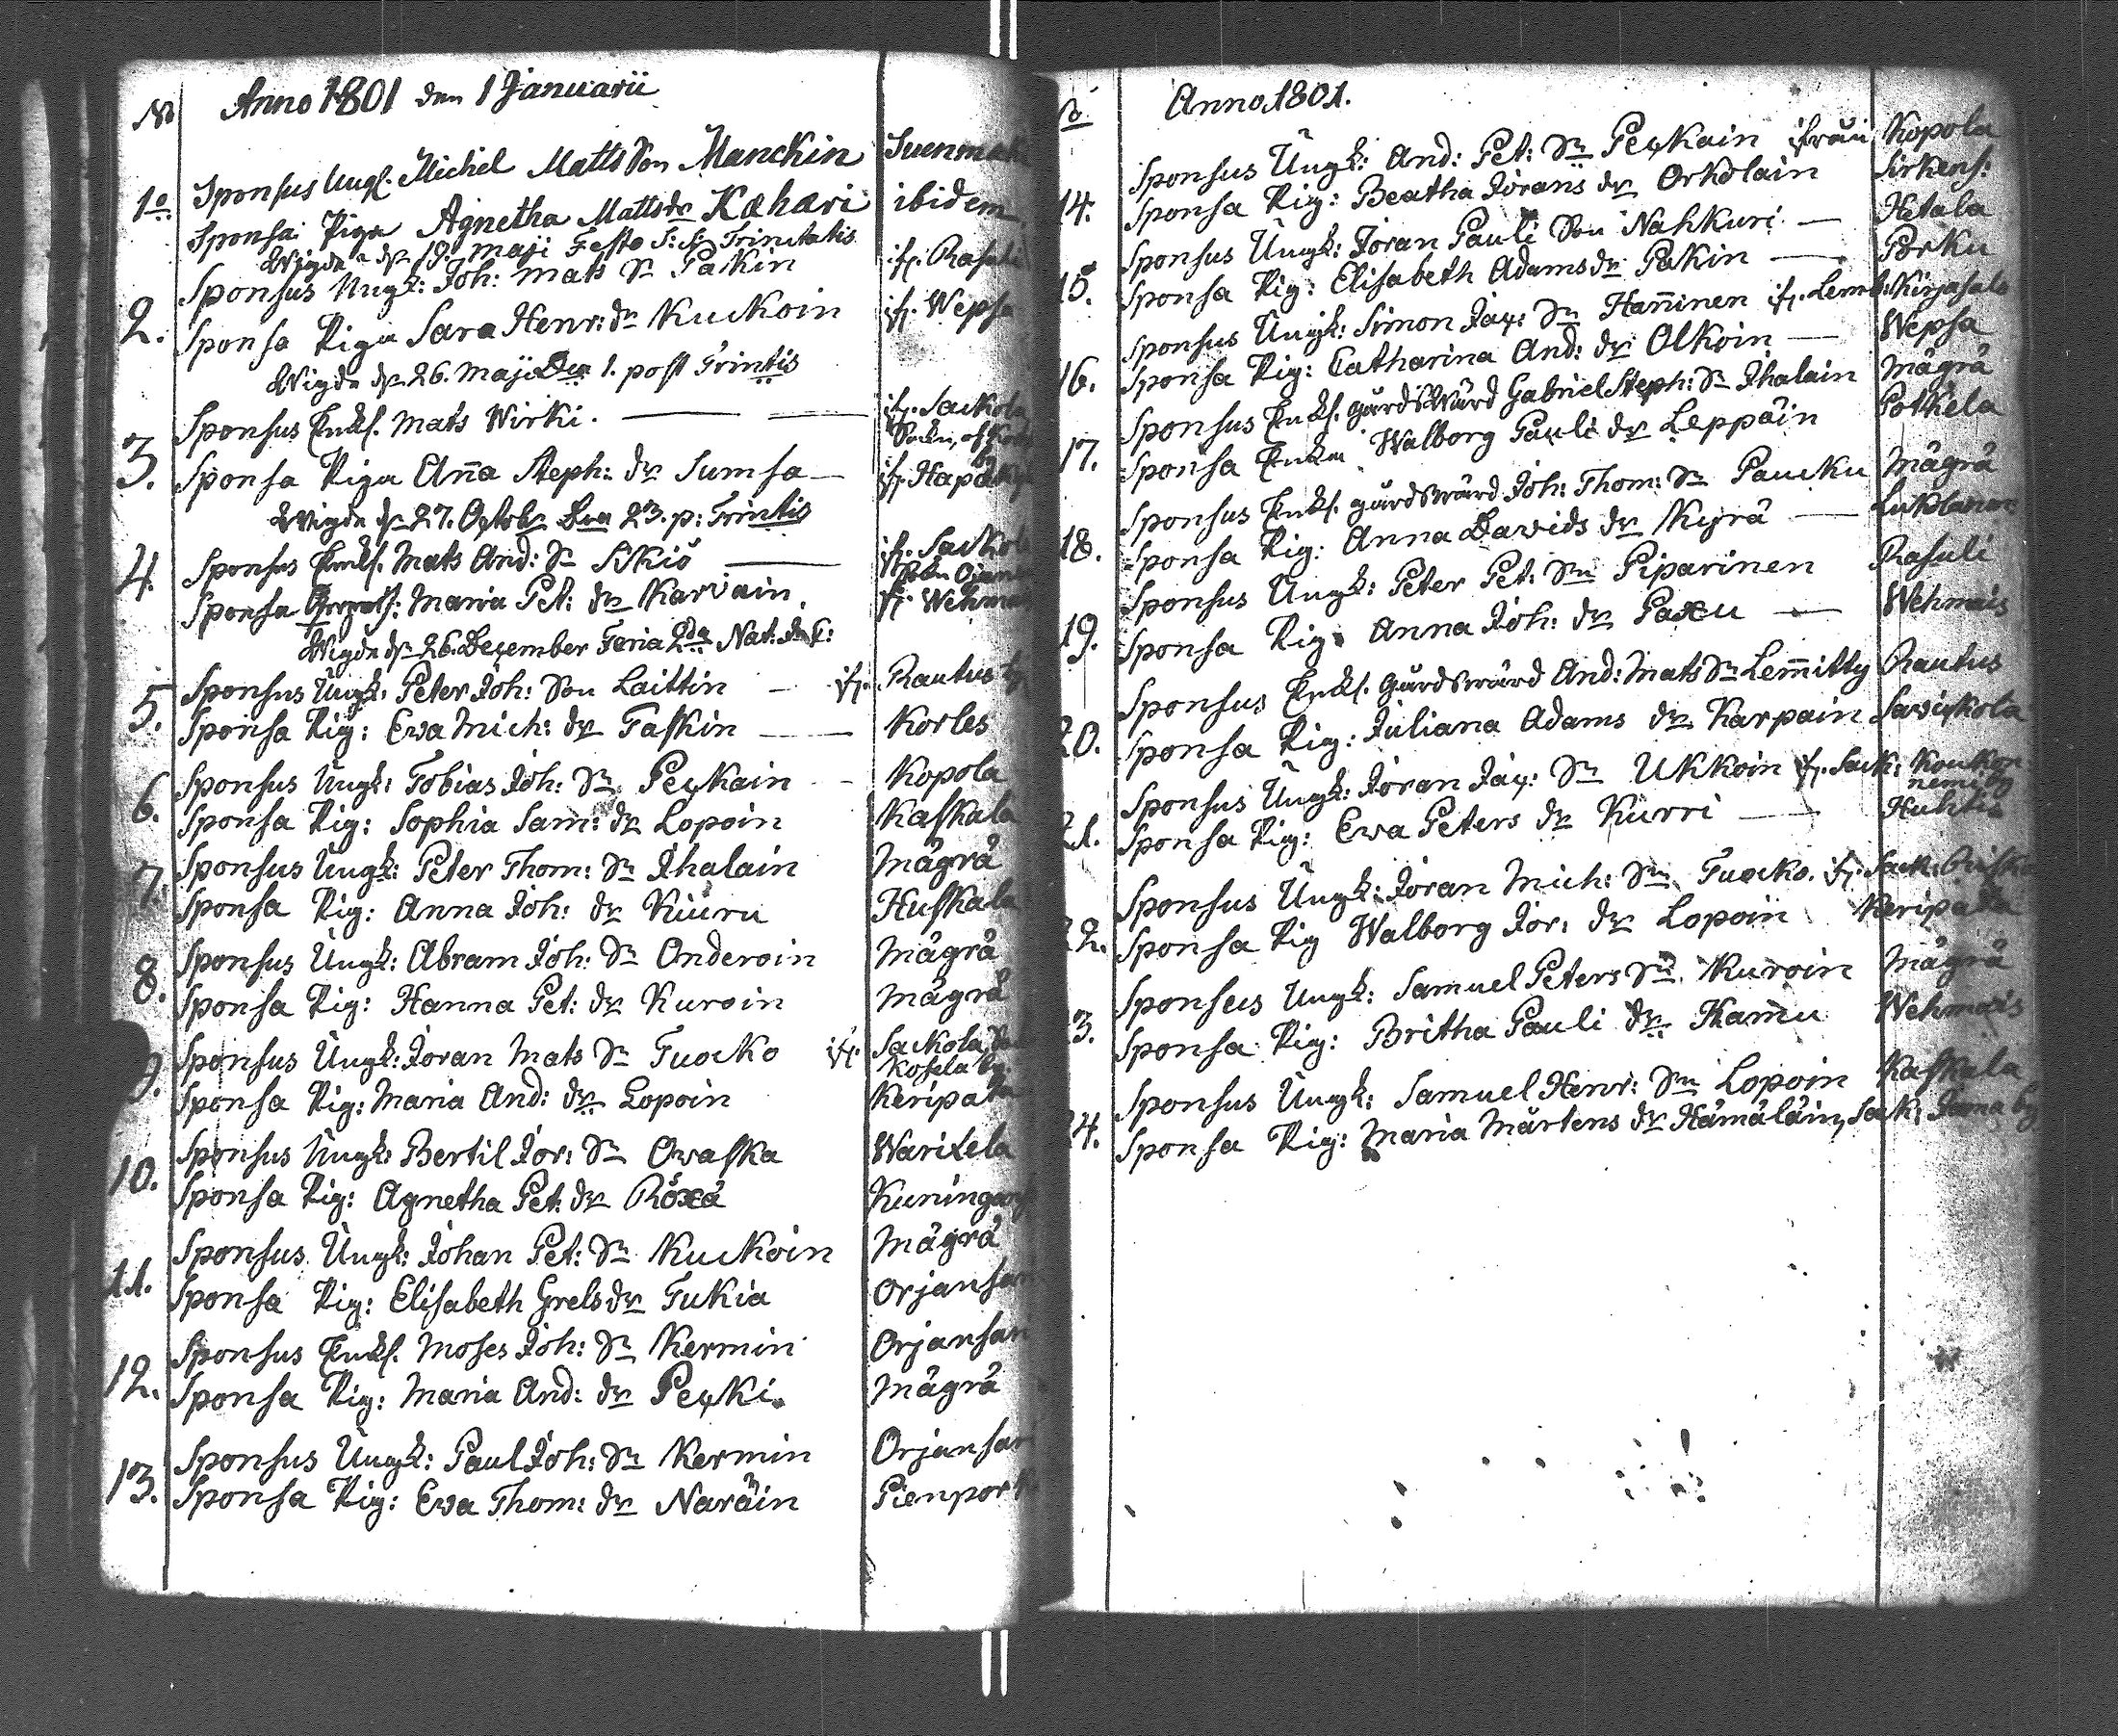 No Anno 1801 den 1 Januarii
Sponsus Ungk. Michel Matts Son Manckin Suenmak
1o. Sponsa Piga Agnetha Mattsdr Kähäri ibidem
Wigde d. 19. Maji Festo S:S: Trinitatis
Sponsus Ungk: Joh: Mats Sn Paskin ifr. Rasuli
2. Sponsa Piga Sara Henr: dr Kuckoin ifr. Wepsa
Wigde d. 26. Maji Dca 1. post Trintis
Sponsus Enkl. Mats Wirki. ifr. Sackola
Sockn, af
by
3. Sponsa Piga Ana Steph: dr Sumsa ifr. Hapa
Wigde d. 27. Octobr Dca 23. p: Trintis
4. Sponsus Enkl. Mats And: Sn Sikiö ifr. Sackola
Sockn
Sponsa Maria Pet: dr Karvain. fr. Wehmais
Wigde d. 26. December Feria 2da Nat:
5. Sponsus Ungk: Peter Joh: Son Laittin ifr. Rautus by
Sponsa Pig: Ewa Mich: dr Taskin Korles
6. Sponsus Ungk: Tobias Joh: Sn Peckain Kopola
Sponsa Pig: Sophia Sam: dr Lopoin Kaskala
7. Sponsus Ungk: Peter Thom: Sn Ihalain Mägrä
Sponsa Pig: Anna Joh: dr Kiuru Huskala
8. Sponsus Ungk: Abram Joh: Sn Onderoin Mägrä
Sponsa Pig: Hanna Pet: dr Kuroin Mägrä
9. Sponsus Ungk: Joran Mats Sn Tuocko ifr. Sackola
Kosela by.
Sponsa Pig: Maria And: dr Lopoin Keripata
10. Sponsus Ungk: Bertil Jor: Sn Owaska Warixela
Sponsa Pig: Agnetha Pet: dr Röxä Kuningans
11. Sponsus Ungk: Johan Pet: Sn Kuckoin Mägrä
Sponsa Pig: Elisabeth Grels dr Tukia Orjansari
12. Sponsus Enkl. Moses Joh: Sn Kermin Orjansari
Sponsa Pig: Maria And: dr Pecki. Mägrä
13. Sponsus Ungk: Paul Joh: Sn Kermin Orjansari
Sponsa Pig: Ewa Thom: dr Naräin Pienpork
No Anno 1801.
Sponsus Ungk: And: Pet: Sn Peckain ifrån Kopola
14. Sponsa Pig: Beatha Jorans dr Orkolain Sirkens:
Sponsus Ungk: Joran Pauli Son Nahkuri Hetala
15. Sponsa Pig: Elisabeth Adams dr Pakin Porku
Sponsus Ungk: Simon Jac: Sn Haninen ifr. Lemb: Kirjasalo
16. Sponsa Pig: Catharina And: dr Olkoin Wepsa
Sponsus Enkl. gårdswärd Gabriel Steph: Sn Ihalain Mägrä
17. Sponsa Enkn Walborg Pauli dr Leppäin Potkela
Sponsus Enkl. gårdswärd Joh: Thom: Sn Paucku Mägrä
18. Sponsa Pig: Anna Davids dr Kyrä
Sponsus Ungk: Peter Pet: Sn Piparinen Rasuli
19. Sponsa Pig: Anna Joh: dr Paxu Wehmais
Sponsus Enkl. gårdswärd And: Mats Sn Lemitty Rautus
20. Sponsa Pig: Juliana Adams dr Karpain Savickola
Sponsus Ungk: Joran Jac: Sn Ukkoin ifr. Sack: Koukon
niemi by
21. Sponsa Pig: Ewa Peters dr Kurri Huhtis
Sponsus Ungk: Joran Mich: Sn Tuocko. ifr. Sack:
22. Sponsa Pig Walborg Jor: dr Lopoin Keripata
Sponsus Ungk: Samuel Peters Sn Kuroin Mägrä
23. Sponsa Pig: Britha Pauli dr Hamu Wehmais
Sponsus Ungk: Samuel Henr: Sn Lopoin Kaskala
24. Sponsa Pig: Maria Mårtens dr Hämäläin, Sack: by